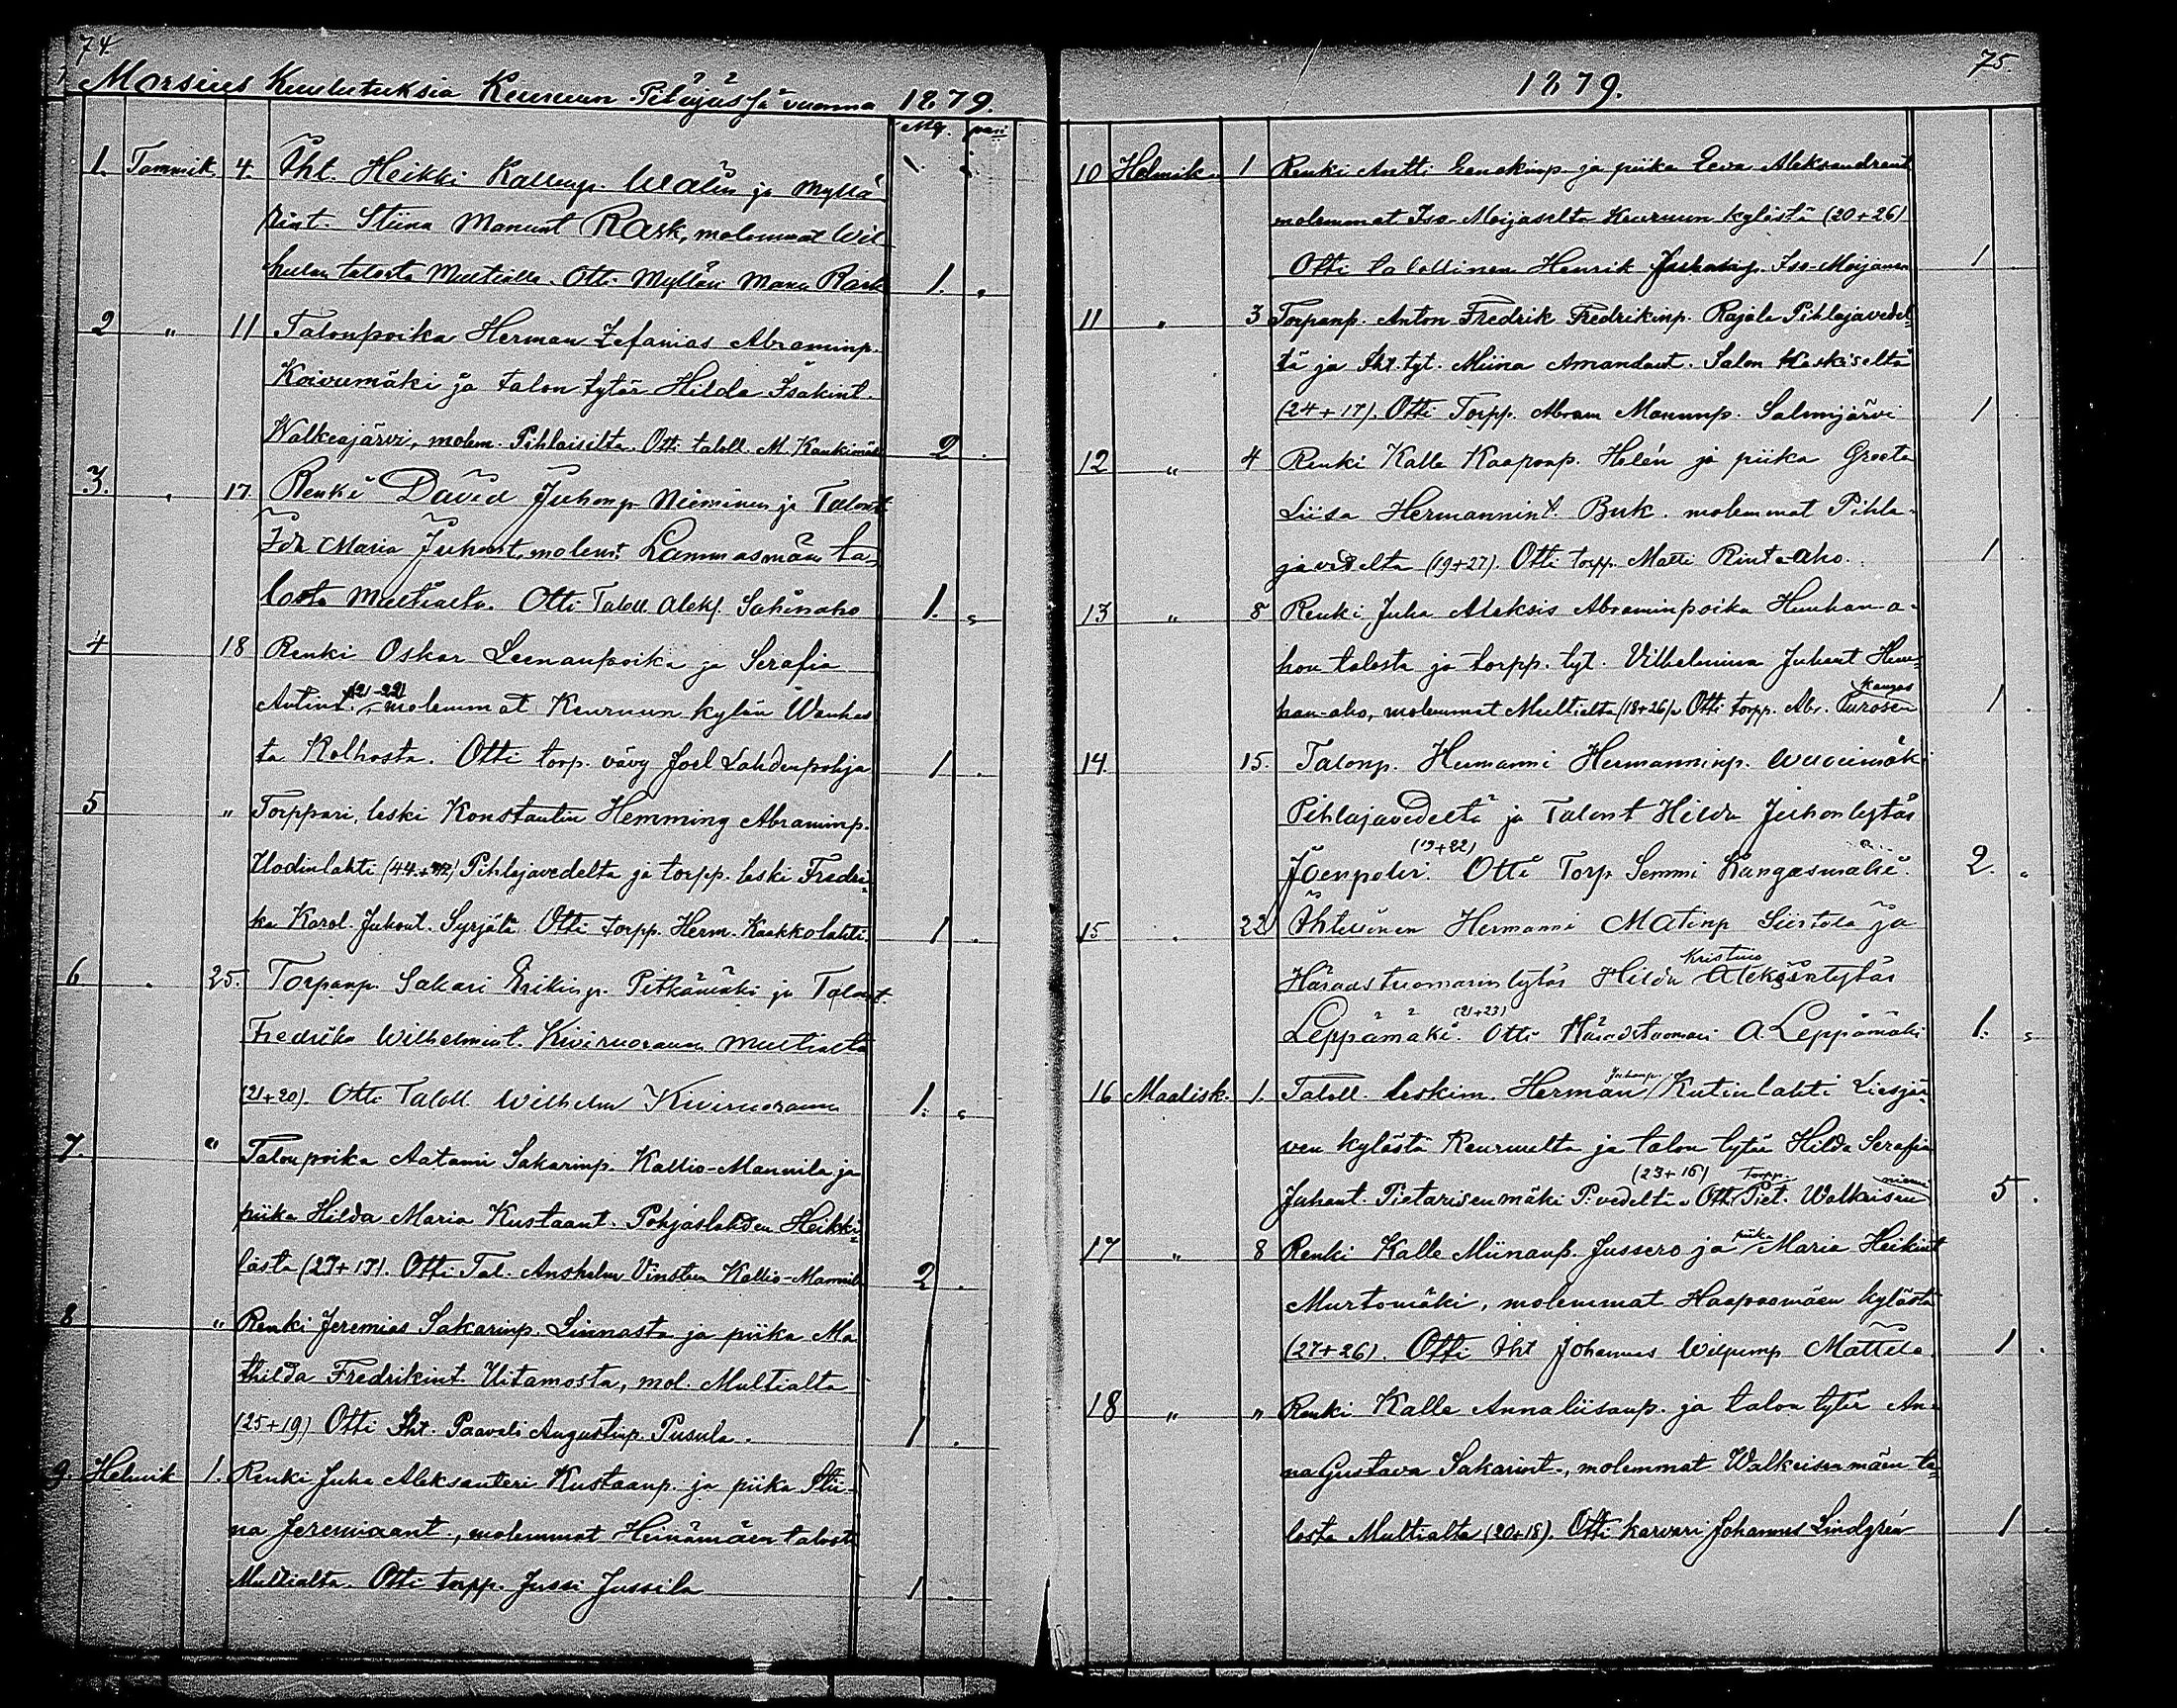 74.
Morsius Kuulutuksia Keuruun Pitäjässä vuonna 1879.
Mg. pni
1. Tammik. 4. Iht. Heikki Kallenp. Walin ja Mylläˮ
rint. Stiina Manunt Rask, molemmat Wil-
hulan talosta Multialla. Otti Mylläri Manu Rask 1.
2 " 11 Talonpoika Herman Zefanias Abraminp.
Koivumäki ja talon tytär Hilda Isakint.
Walkeajärvi, molem. Pihlaiselta. Otti taloll. M. Kaukimäki 2.
3. " 17 Renki David Juhonp. Nieminen ja Talont.
Ida Maria Juhont, molemt. Lammasmäen ta-
losta Multialta. Otti Taloll. Aleks. Sahinaho 1.
4 18 Renki Oskar Leenanpoika ja Serafia
Antint. (21-22) molemmat Keuruun kylän Wanhas
ta Kolhosta. Otti torp. vävy Joel Lahdenpohja 1.
5 " Torppari, leski Konstantin Hemming Abraminp.
Uodinlahti (44+42) Pihlajavedelta ja torpp. leski Fredri-
ka Karol. Juhont. Syrjälä Otti torpp. Herm. Kaakkolahti. 1.
6 " 25. Torpanp. Sakari Erikinp. Pitkämäki ja Talont.
Fredrika Wilhelmint. Kiviruorauma Multialta
(21+20). Otti Taloll. Wilhelm Kiviruorauma 1.
7. " Talonpoika Aatami Sakarinp. Kallio-Mannila ja
piika Hilda Maria Kustaant. Pohjaslahden Heikki-
lästa (27+17). Otti Tal. Anshelm Vinsten Kallio-Mannila 2.
8 " Renki Jeremias Sakarinp. Linnasta ja piika Ma
thilda Fredrikint. Uitamosta, mol. Multialta
(25+19) Otti Iht. Paavali Augustinp. Pusula. 1.
9. Helmik 1. Renki Juha Aleksanteri Kustaanp. ja piika Stii-
na Jeremiaant., molemmat Heinämäen talosta
Multialta. Otti torpp. Jussi Jussila 1.
75.
1879.
10 Helmik. 1 Renki Antti Eenokinp. ja piika Eeva Aleksandrant
molemmat Iso-Meijaselta Keuruun kylästä (20+26)
Otti talollinen Henrik Juhonp. Iso-Meijanen 1
11 " 3 Torpanp. Anton Fredrik Fredrikinp. Rajala Pihlajavedel-
tä ja Iht. tyt. Miina Amandant. Salon Kaskiselta
(24+17). Otti Torpp. Abram Manunp. Salmijärvi 1
12 " 4 Renki Kalle Kaaponp. Helén ja piika Greeta
Liisa Hermannint. Buk. molemmat Pihla-
javedelta (19+27). Otti torpp. Matti Rinta-aho. 1
13 " 8 Renki Juha Aleksis Abraminpoika Huuhan-a-
hon talosta ja torpp. tyt. Vilhelmina Juhont Huu-
han-aho, molemmat Multialta (18+26). Otti torpp. Abr. Purosen
kangas 1.
14. 15. Talonp. Hermanni Hermanninp. Wuorimäki
Pihlajavedeltä ja Talont Hilda Juhontytär
(19+22)
Joenpolvi. Otti Torp. Semmi Kangasmäki. 2.
15 " 22 Ihtellinen Hermanni Matinp Siistola ja
Kristina
Häraastuomarin tytär Hilda Aleksintytär
(21+23)
Leppämäki. Otti Häradstuomari A. Leppämäki 1.
16 Maalisk. 1. Taloll. leskim. Herman Juhonp. Kutinlahti Liesjär-
ven kylästä Keuruulta ja talon tytär Hilda Serafia
(23+16) torpp. niemi
Juhont. Pietarisenmäki P. vedeltä. Otti Piet. Walkeisen 5.
17 " 8 Renki Kalle Miinanp. Jussero ja piika Maria Heikint
Murtomäki, molemmat Haapaamäen kylästä
(27+26). Otti Iht Johannes Wilpunp Mattila. 1.
18 " " Renki Kalle Annaliisanp. ja talon tytär An-
na Gustava Sakarint., molemmat Walkeisenmäen ta-
losta Multialta (20+18). Otti karvari Johannes Lindgrén 1.